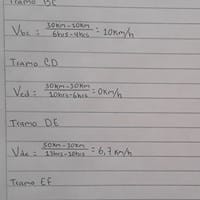 Tramo BC
Vbc = 30km-10km / 6hrs-4hrs = 10km/h
Tramo CD
Vcd = 30km-30km / 10hrs-6hrs = 0km/h
Tramo DE
Vde = 50km-30km / 13hrs-10hrs = 6,7km/h
Tramo EF